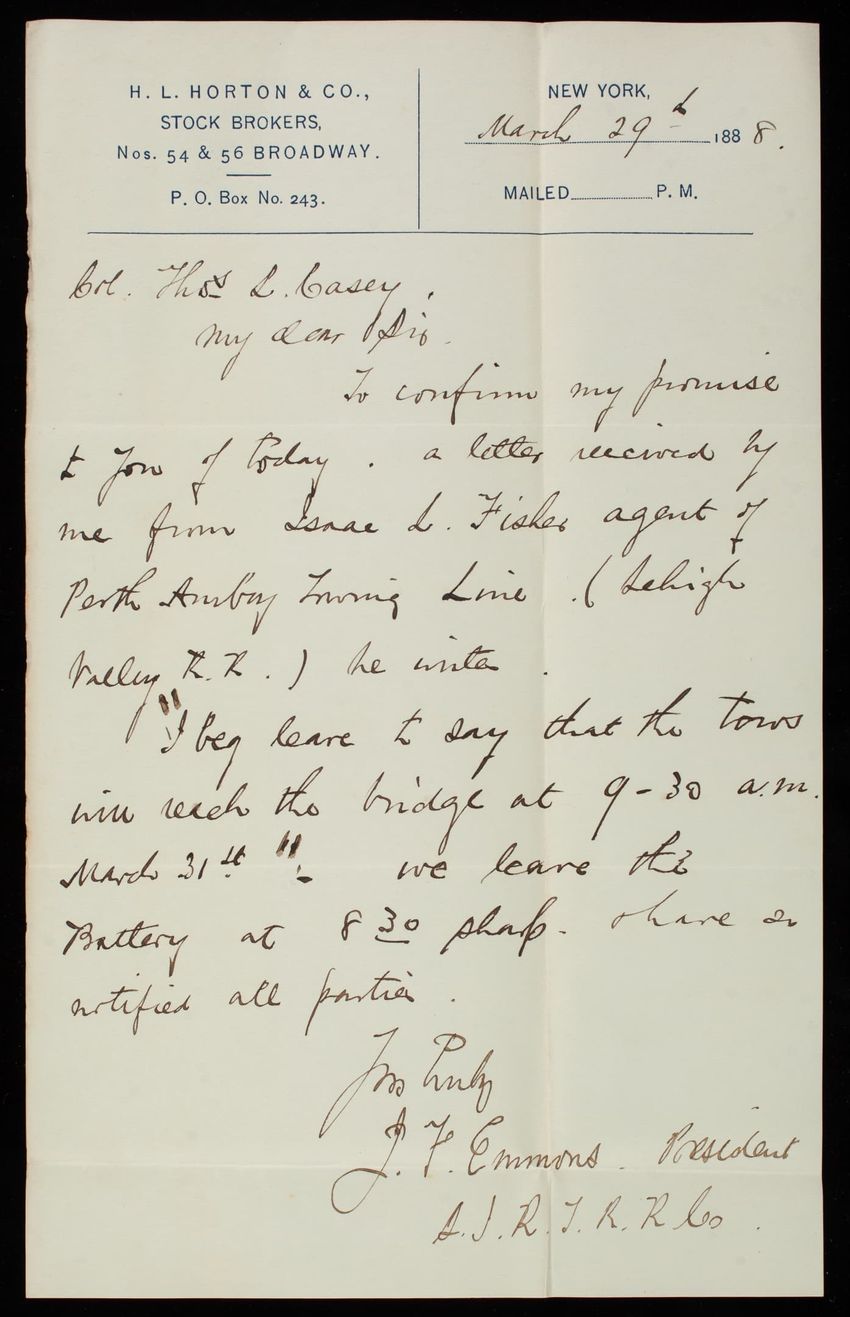 H. L. HORTON & CO.,
STOCK BROKERS,
Nos. 54 & 56 BROADWAY.
P. O. Box No. 243.
NEW YORK,
March 29th 1888.
MAILED P. M.
Col. Thos L. Casey.
My dear Sir.
To confirm my promise
to you of today. a letter received by
me from Isaac L. Fisher agent of
Perth Amboy Towing Line. (Lehigh
Valley R.R.) he writes.
"I beg leave to say that the tows
will reach the bridge at 9-30 a.m.
March 31st". we leave the
Battery at 8 30 sharp. & have so
notified all parties.
Yrs truly
J. F. Emmons. President
S. I. R. T. R. R Co.